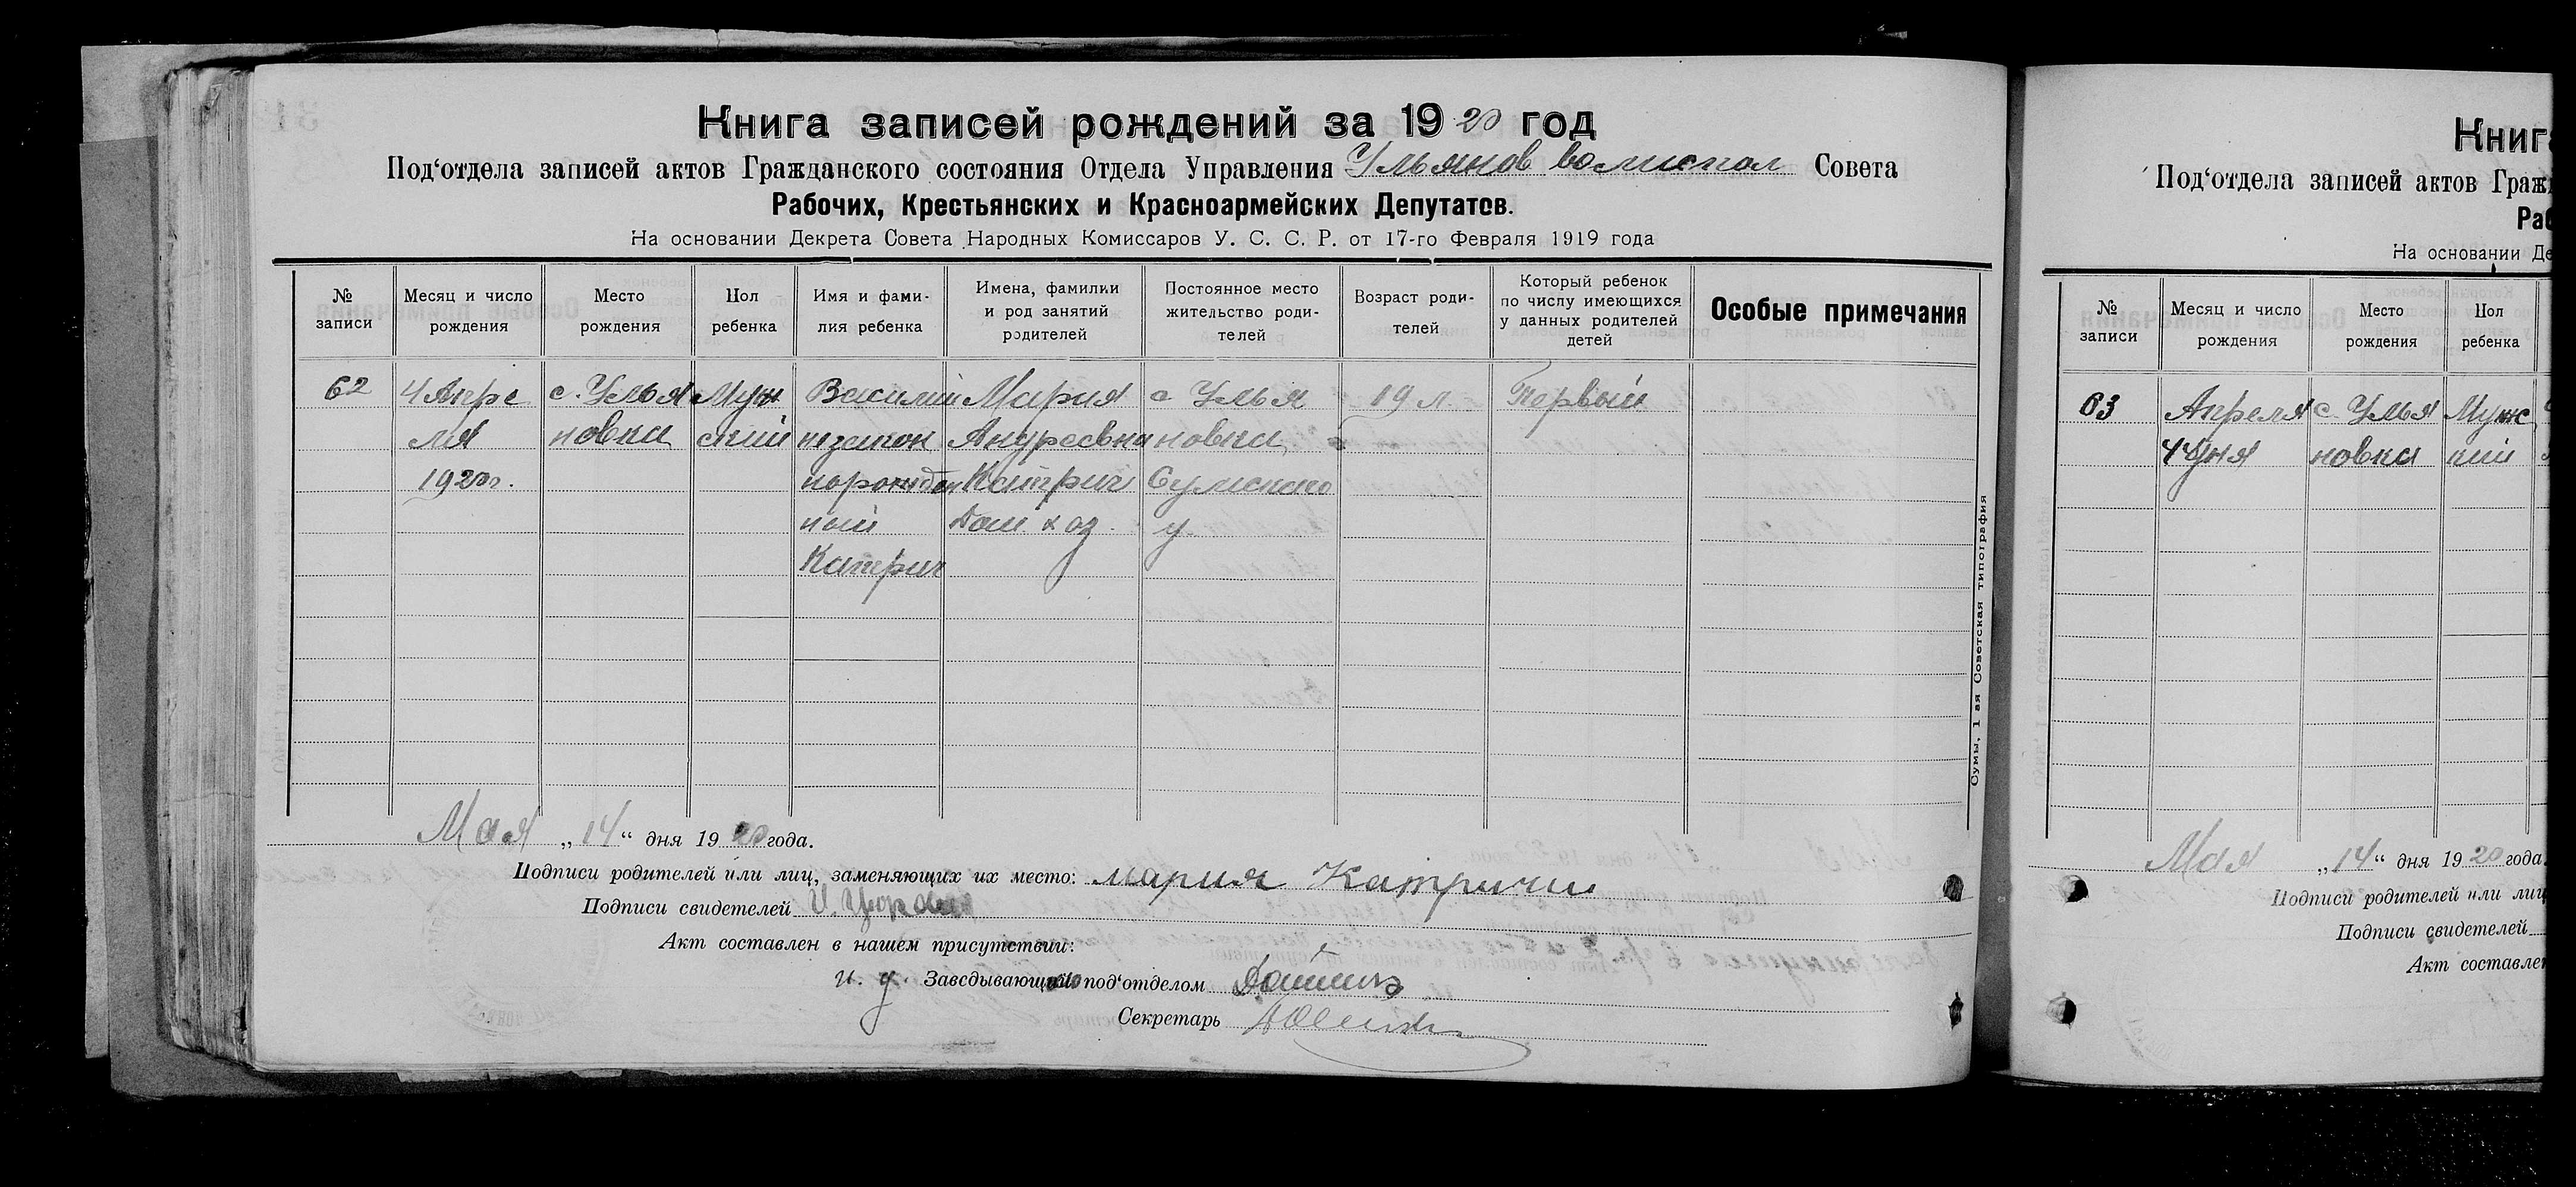 Книга записей рождений за 1920 год
Под‘отдела записей актов Гражданского состояния Отдела Управления Ульянов волиспол Совета
Рабочих, Крестьянских и Красноармейских Депутатов.
На основании Декрета Совета Народных Комиссаров У. С. С. Р. от 17-го Февраля 1919 года
№ записи
Месяц и число рождения
Место рождения
Пол ребенка
Имя и фами-
лия ребенка
Имена, фамилии
и род занятий
родителей
Постоянное место
жительство роди-
телей
Возраст роди-
телей
Который ребенок
по числу имеющихся
у данных родителей
детей
Особые примечания
62
4 Апре
ля
1920 г.
с. Улья
новка
Муж
ский
Василий
незакон
норожден
ный
Катрич
Мария
Андреевна
Катрич
Дом. хоз.
с Улья
новка
Сумского
у.
19 л.
Первый
Мая „14“ дня 1920 года.
Подписи родителей или лиц, заменяющих их место: Мария Катричи
Подписи свидетелей
Акт составлен в нашем присутствии:
И. д. Заведывающий под‘отделом
Секретарь
Сумы, 1 ая Советская типография
Книга
Под‘отдела записей актов Граж
Раб
На основании Де
№ записи
Месяц и число рождения
Место рождения
Пол ребенка
63
Апреля
4 дня
с. Улья
новка
Мужс
кий
Мая „14“ дня 1920 года.
Подписи родителей или лиц
Подписи свидетелей
Акт составлен